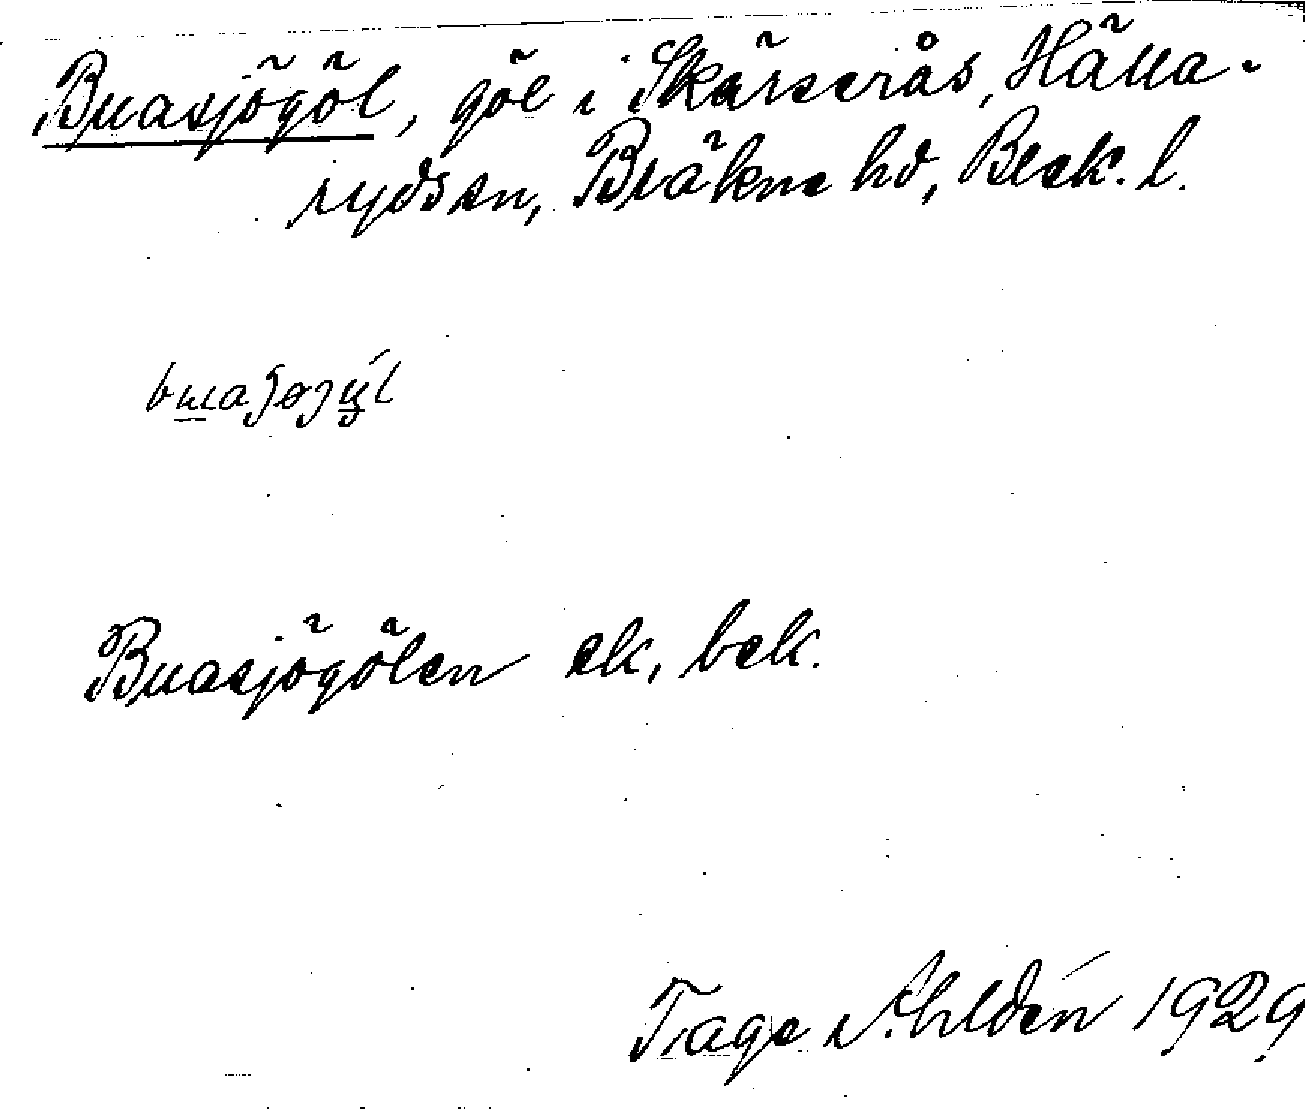 Buasjögöl, göl i Skärserås, Hälla-
rydssn, Bräkne hd, Blek. l.
Buasjögölen ek, bek.
Tage Ahldén 1929